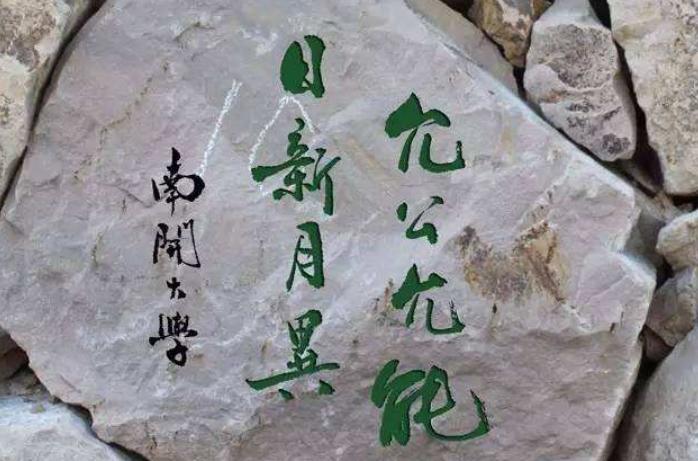 允公允能
日新月異
南開大學